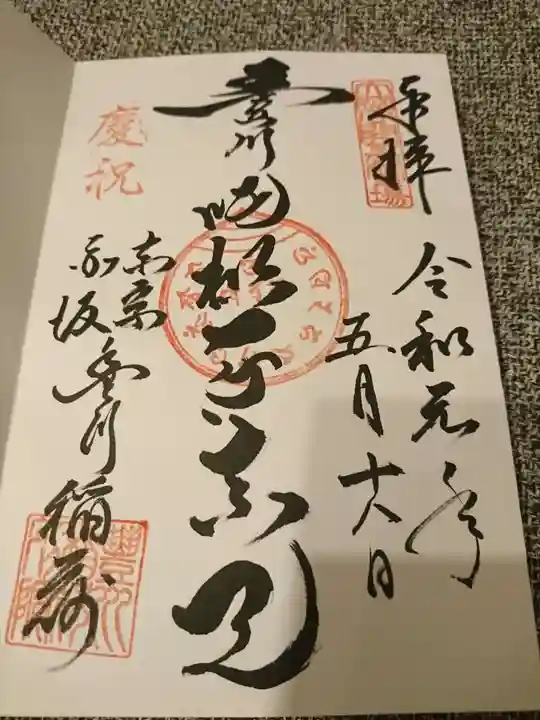 奉拝
令和元年
五月十八日
豊川吒枳尼真天
東京
赤坂豊川稲荷
慶祝